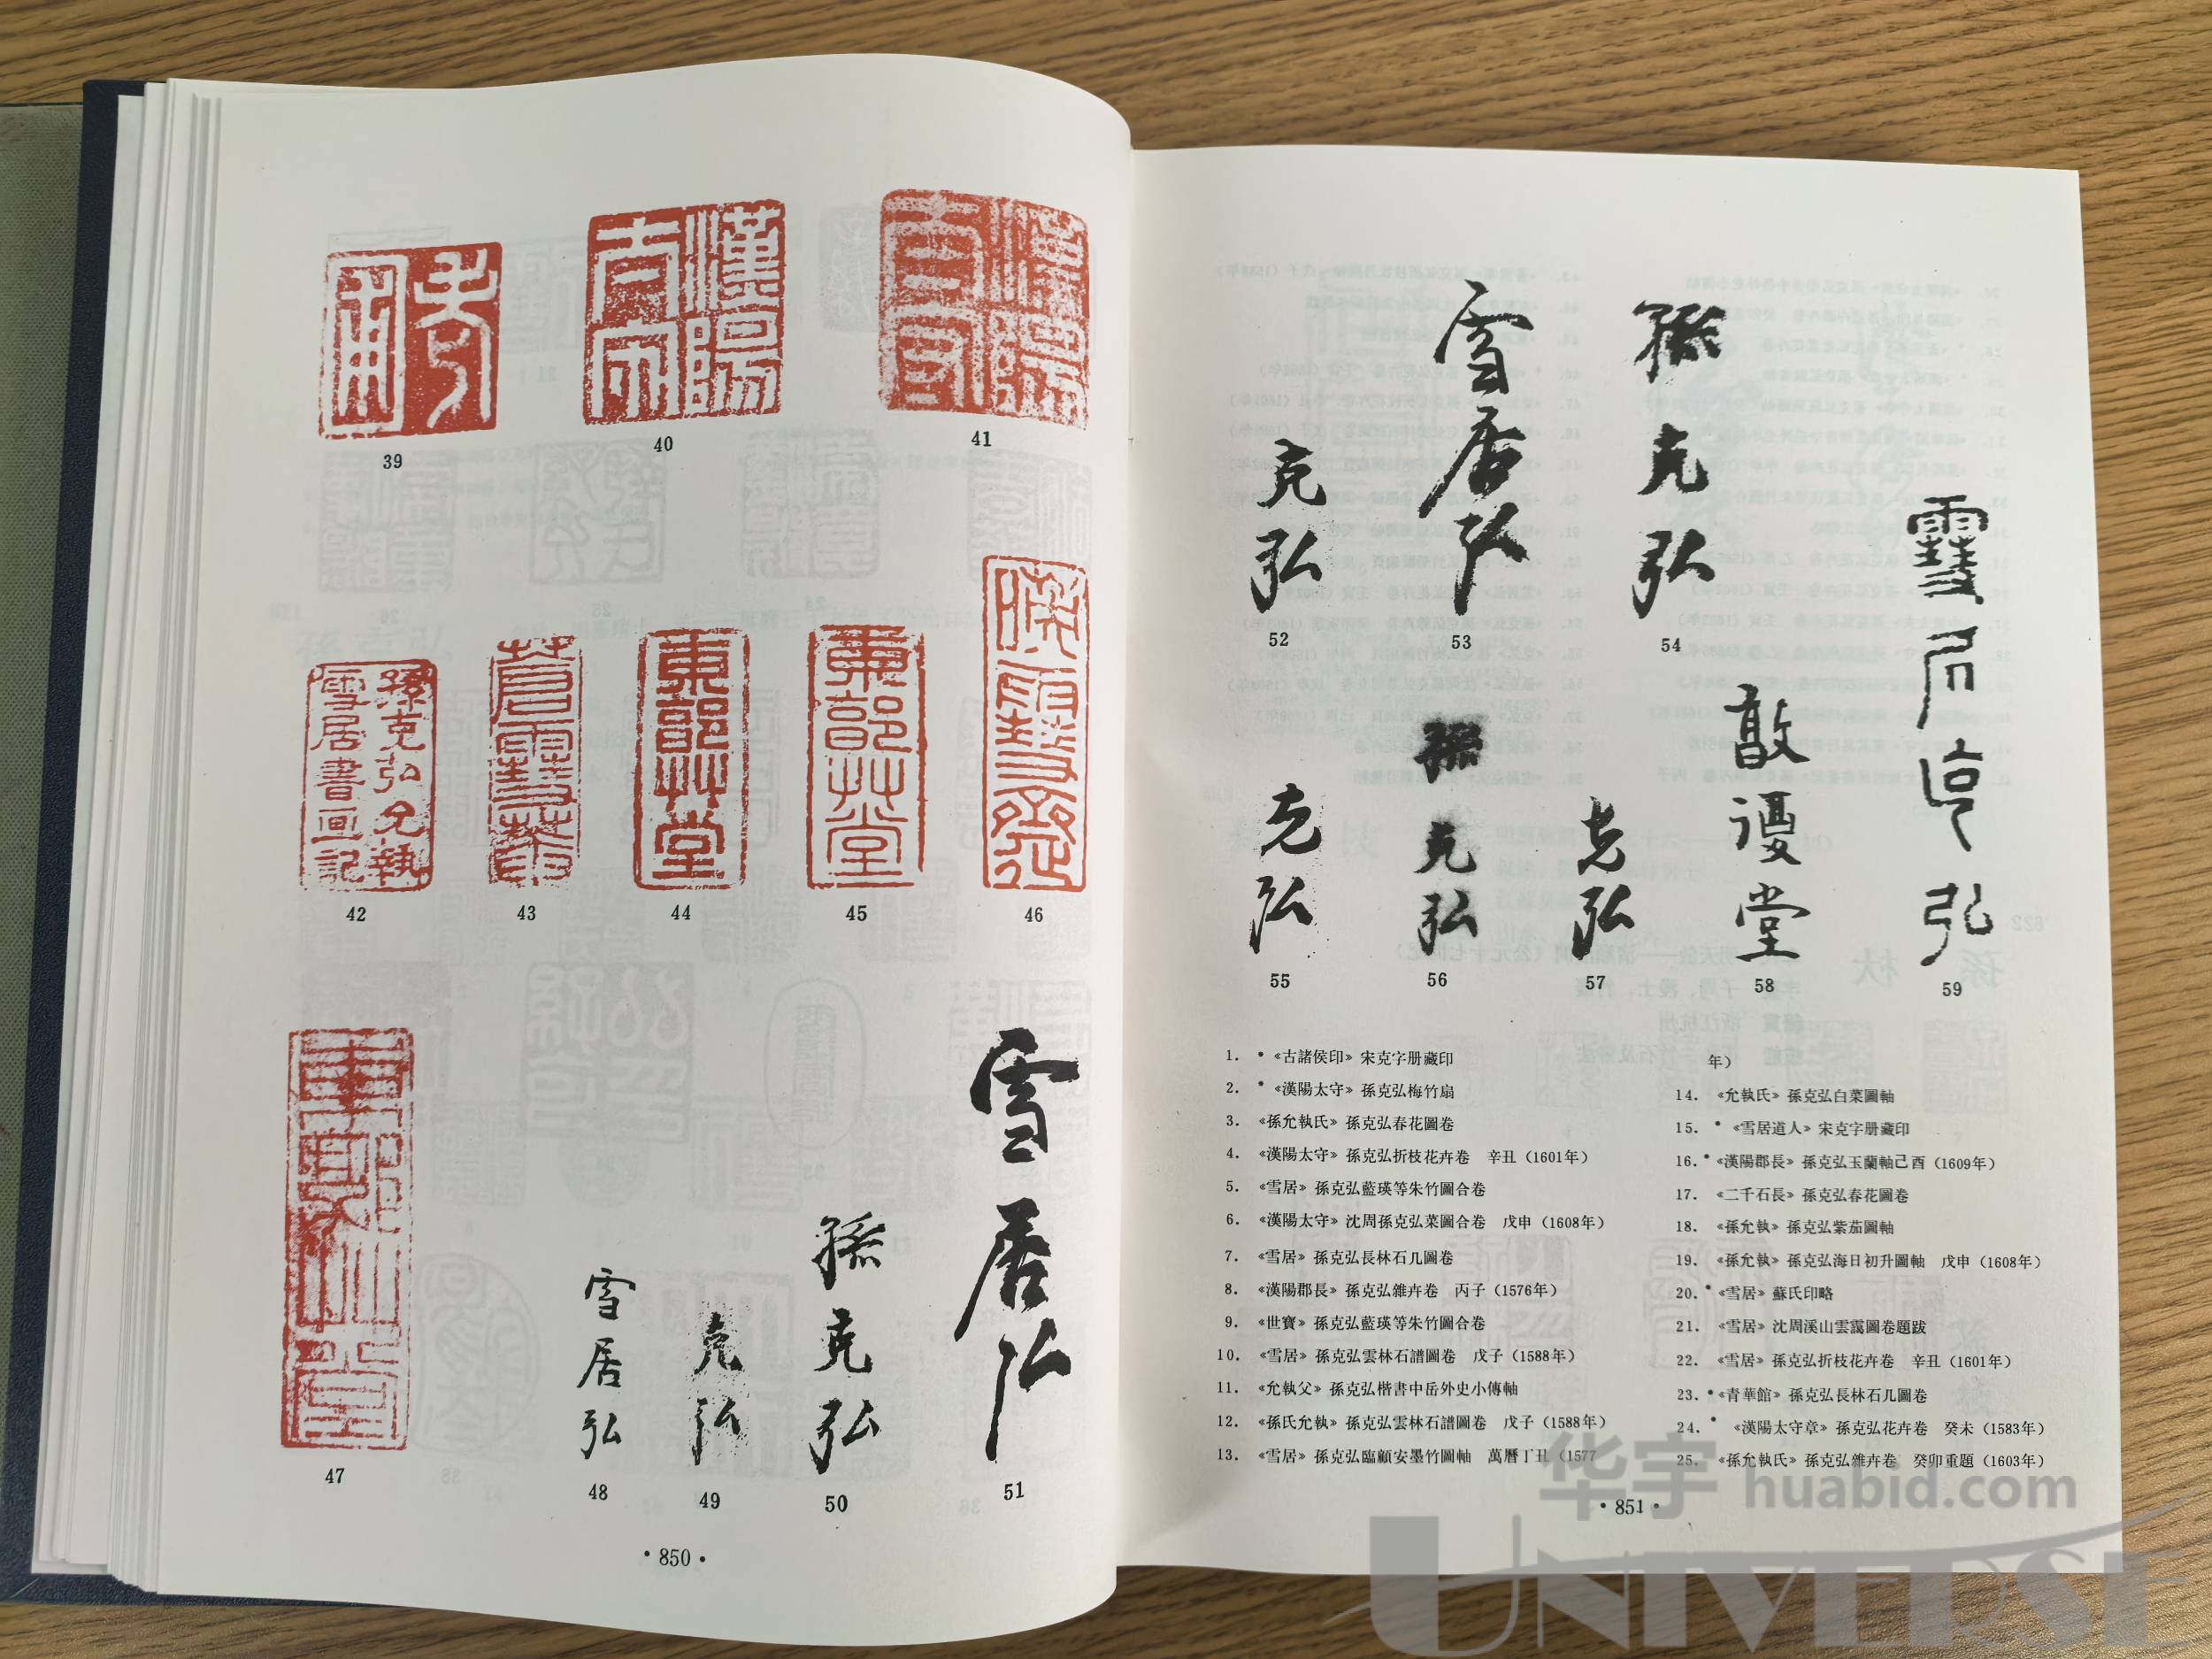 漢陽
太守
39
40
41
孫克弘允執
雪居書画記
東郭艸堂
東郭艸堂
42
43
44
45
46
東郭艸堂
雪居弘
克弘
孫克弘
雪居弘
47
48
49
50
51
·850·
克弘
雪居弘
孫克弘
52
53
54
克弘
孫克弘
克弘
敢谡堂
弘
55
56
57
58
59
1. *《古諸侯印》宋克字册藏印
2. *《漢陽太守》孫克弘梅竹扇
3. 《孫允執氏》孫克弘春花圖卷
4. 《漢陽太守》孫克弘折枝花卉卷 辛丑（1601年）
5. 《雪居》孫克弘藍瑛等朱竹圖合卷
6. 《漢陽太守》沈周孫克弘菜圖合卷 戊申（1608年）
7. 《雪居》孫克弘長林石几圖卷
8. 《漢陽郡長》孫克弘雜卉卷 丙子（1576年）
9. 《世寶》孫克弘藍瑛等朱竹圖合卷
10. 《雪居》孫克弘雲林石譜圖卷 戊子（1588年）
11. 《允執父》孫克弘楷書中岳外史小傳軸
12. 《孫氏允執》孫克弘雲林石譜圖卷 戊子（1588年）
13. 《雪居》孫克弘臨顧安墨竹圖軸 萬曆丁丑（1577
年）
14. 《允執氏》孫克弘白菜圖軸
15. *《雪居道人》宋克字册藏印
16. *《漢陽郡長》孫克弘玉蘭軸己酉（1609年）
17. 《二千石長》孫克弘春花圖卷
18. 《孫允執》孫克弘紫茄圖軸
19. 《孫允執》孫克弘海日初升圖軸 戊申（1608年）
20. *《雪居》蘇氏印略
21. 《雪居》沈周溪山雲靄圖卷題跋
22. 《雪居》孫克弘折枝花卉卷 辛丑（1601年）
23. *《青華館》孫克弘長林石几圖卷
24. *《漢陽太守章》孫克弘花卉卷 癸未（1583年）
25. 《孫允執氏》孫克弘雜卉卷 癸卯重題（1603年）
·851·
华宇 huabid.com
UNIVERSE